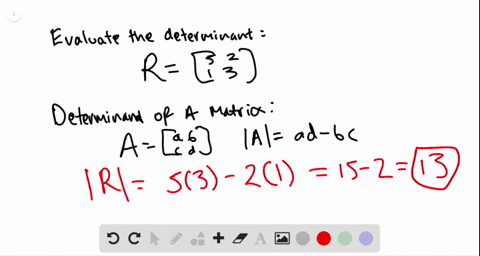 Evaluate the determinant:
R = [5 2
1 3]
Determinand of A Matrix:
A = [a b
c d] |A| = ad - bc
|R| = 5(3) - 2(1) = 15 - 2 = 13